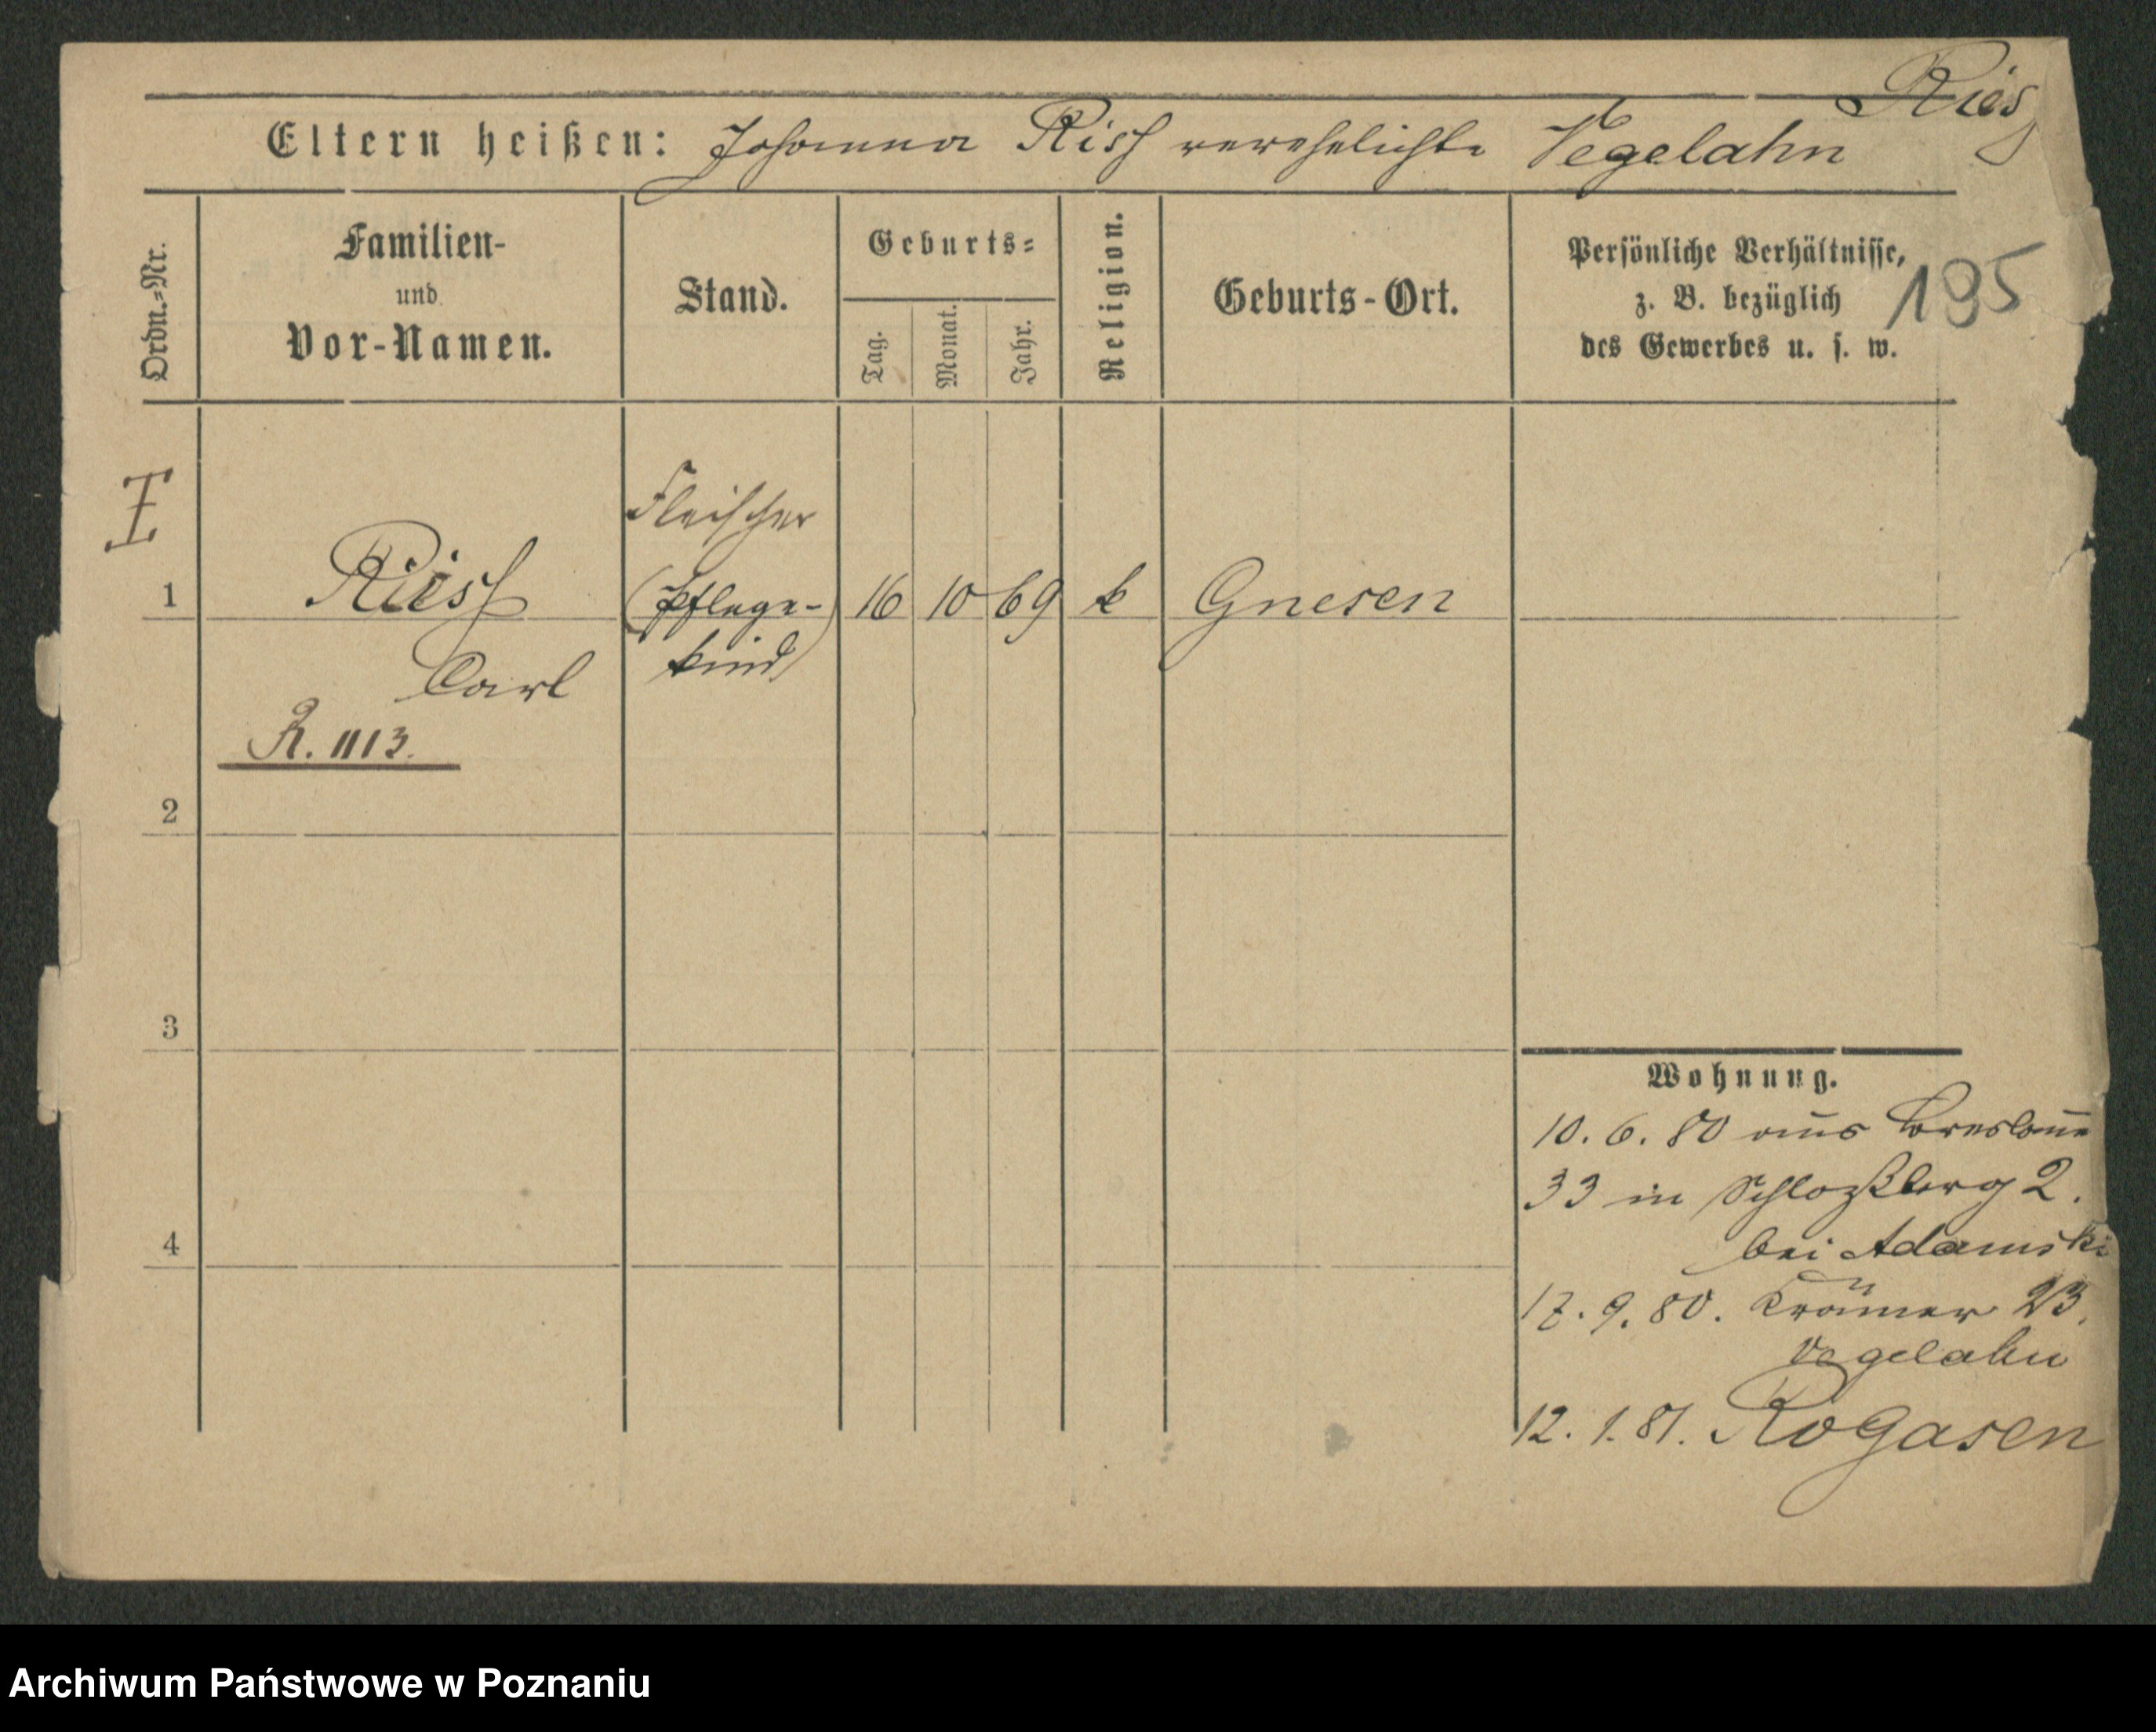 Ries
Eltern heißen: Johanna Riss verehelichte Vegelahn
Ordn.=Nr.
Familien-
und
Vor-Namen.
Stand.
Geburts=
Tag.
Monat.
Jahr.
Religion.
Geburts-Ort.
Persönliche Verhältnisse,
z. B. bezüglich
des Gewerbes u. s. w.
195
I
Fleischer
1 Riess (Pflege- 16 10 69 k Gnesen
kind)
Carl
R. 1113.
2
3
4
Wohnung.
10. 6. 80 aus Breslauer
33 in Schloßberg 2.
bei Adamski
17. 9. 80. Krämer 23.
Vegelahn
12. 1. 81. Rogasen
Archiwum Państwowe w Poznaniu